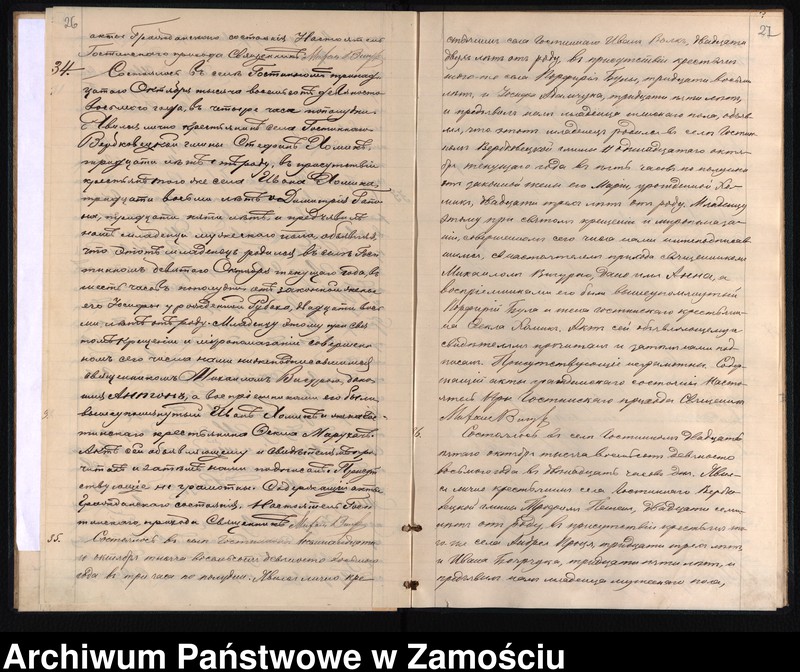 26
актовъ Гражданскаго состоянія Настоятель
Гостинскаго прихода Священникъ
34.
Состоялось въ селѣ Гостинномъ тринад-
цатаго Октября тысяча восемьсотъ девяносто
восьмого года, въ четыре часа пополудни.
Явился лично крестьянинъ села Гостиннаго
Вербковицкой гмины
тридцати лѣтъ отъ роду, въ присутствіи
крестьянъ того же села Ивана
тридцати восьми лѣтъ и Димитрія
тридцати пяти лѣтъ, и предъявилъ
намъ младенца мужескаго пола, объявляя,
что этотъ младенецъ родился въ селѣ Гос-
тинномъ девятаго Октября текущаго года, въ
шесть часовъ пополудни отъ законной жены
его урожденной двадцати вось-
ми лѣтъ отъ роду. Младенцу этому при свя-
томъ крещеніи и миропомазаніи совершен-
номъ сего числа нами нижеподписавшимся
священникомъ Михаиломъ дано
имя Антонъ, а воспріемниками его были
вышеупомянутый Иванъ и
тинская крестьянка Ѳекла
Актъ сей объявляющему и свидѣтелямъ про-
читанъ и затѣмъ нами подписанъ. Присут-
ствующіе не грамотны. Содержащій акты
Гражданскаго состоянія, Настоятель Гос-
тинскаго прихода Священникъ
35.
Состоялось въ селѣ Гостинномъ
октября тысяча восемьсотъ девяносто восьмого
года въ три часа по полудни. Явился лично кре-
27
стьянинъ села Гостиннаго Иванъ Волкъ, двадцати
двухъ лѣтъ отъ роду, въ присутствіи крестьянъ
того же села Порфирія Була, тридцати восьми
лѣтъ, и тридцати пяти лѣтъ,
и предъявилъ намъ младенца женскаго пола, объяв-
ляя, что этотъ младенецъ родился въ селѣ Гостин-
номъ Вербковицкой гмины одинадцатаго октяб-
ря текущаго года въ пять часовъ по полудни
отъ законной жены его Маріи, урожденной
двадцати трехъ лѣтъ отъ роду. Младенцу
этому при святомъ крещеніи и миропомаза-
ніи, совершенномъ сего числа нами нижеподписав-
шимся, Настоятелемъ прихода священникомъ
Михаиломъ дано имя Анна, а
воспріемниками его были вышеупомянутый
Порфирій Була и жена гостинскаго крестьяни-
на Ѳекла Актъ сей объявляющему и
свидѣтелямъ прочитанъ и затѣмъ нами под-
писанъ. Присутствующіе неграмотны. Содер-
жащій акты гражданскаго состоянія Насто-
ятель Гостинскаго прихода Священникъ
Михаилъ
6.
Состоялось въ селѣ Гостинномъ двадцать
пятаго октября тысяча восемьсотъ девяносто
восьмого года въ двѣнадцать часовъ дня. Явил-
ся лично крестьянинъ села Гостиннаго Вербко-
вицкой гмины двадцати семи
лѣтъ отъ роду, въ присутствіи крестьянъ то-
го же села Андрея тридцати трехъ лѣтъ
и Ивана тридцати пяти лѣтъ, и
предъявилъ намъ младенца мужескаго пола,
Archiwum Państwowe w Zamościu